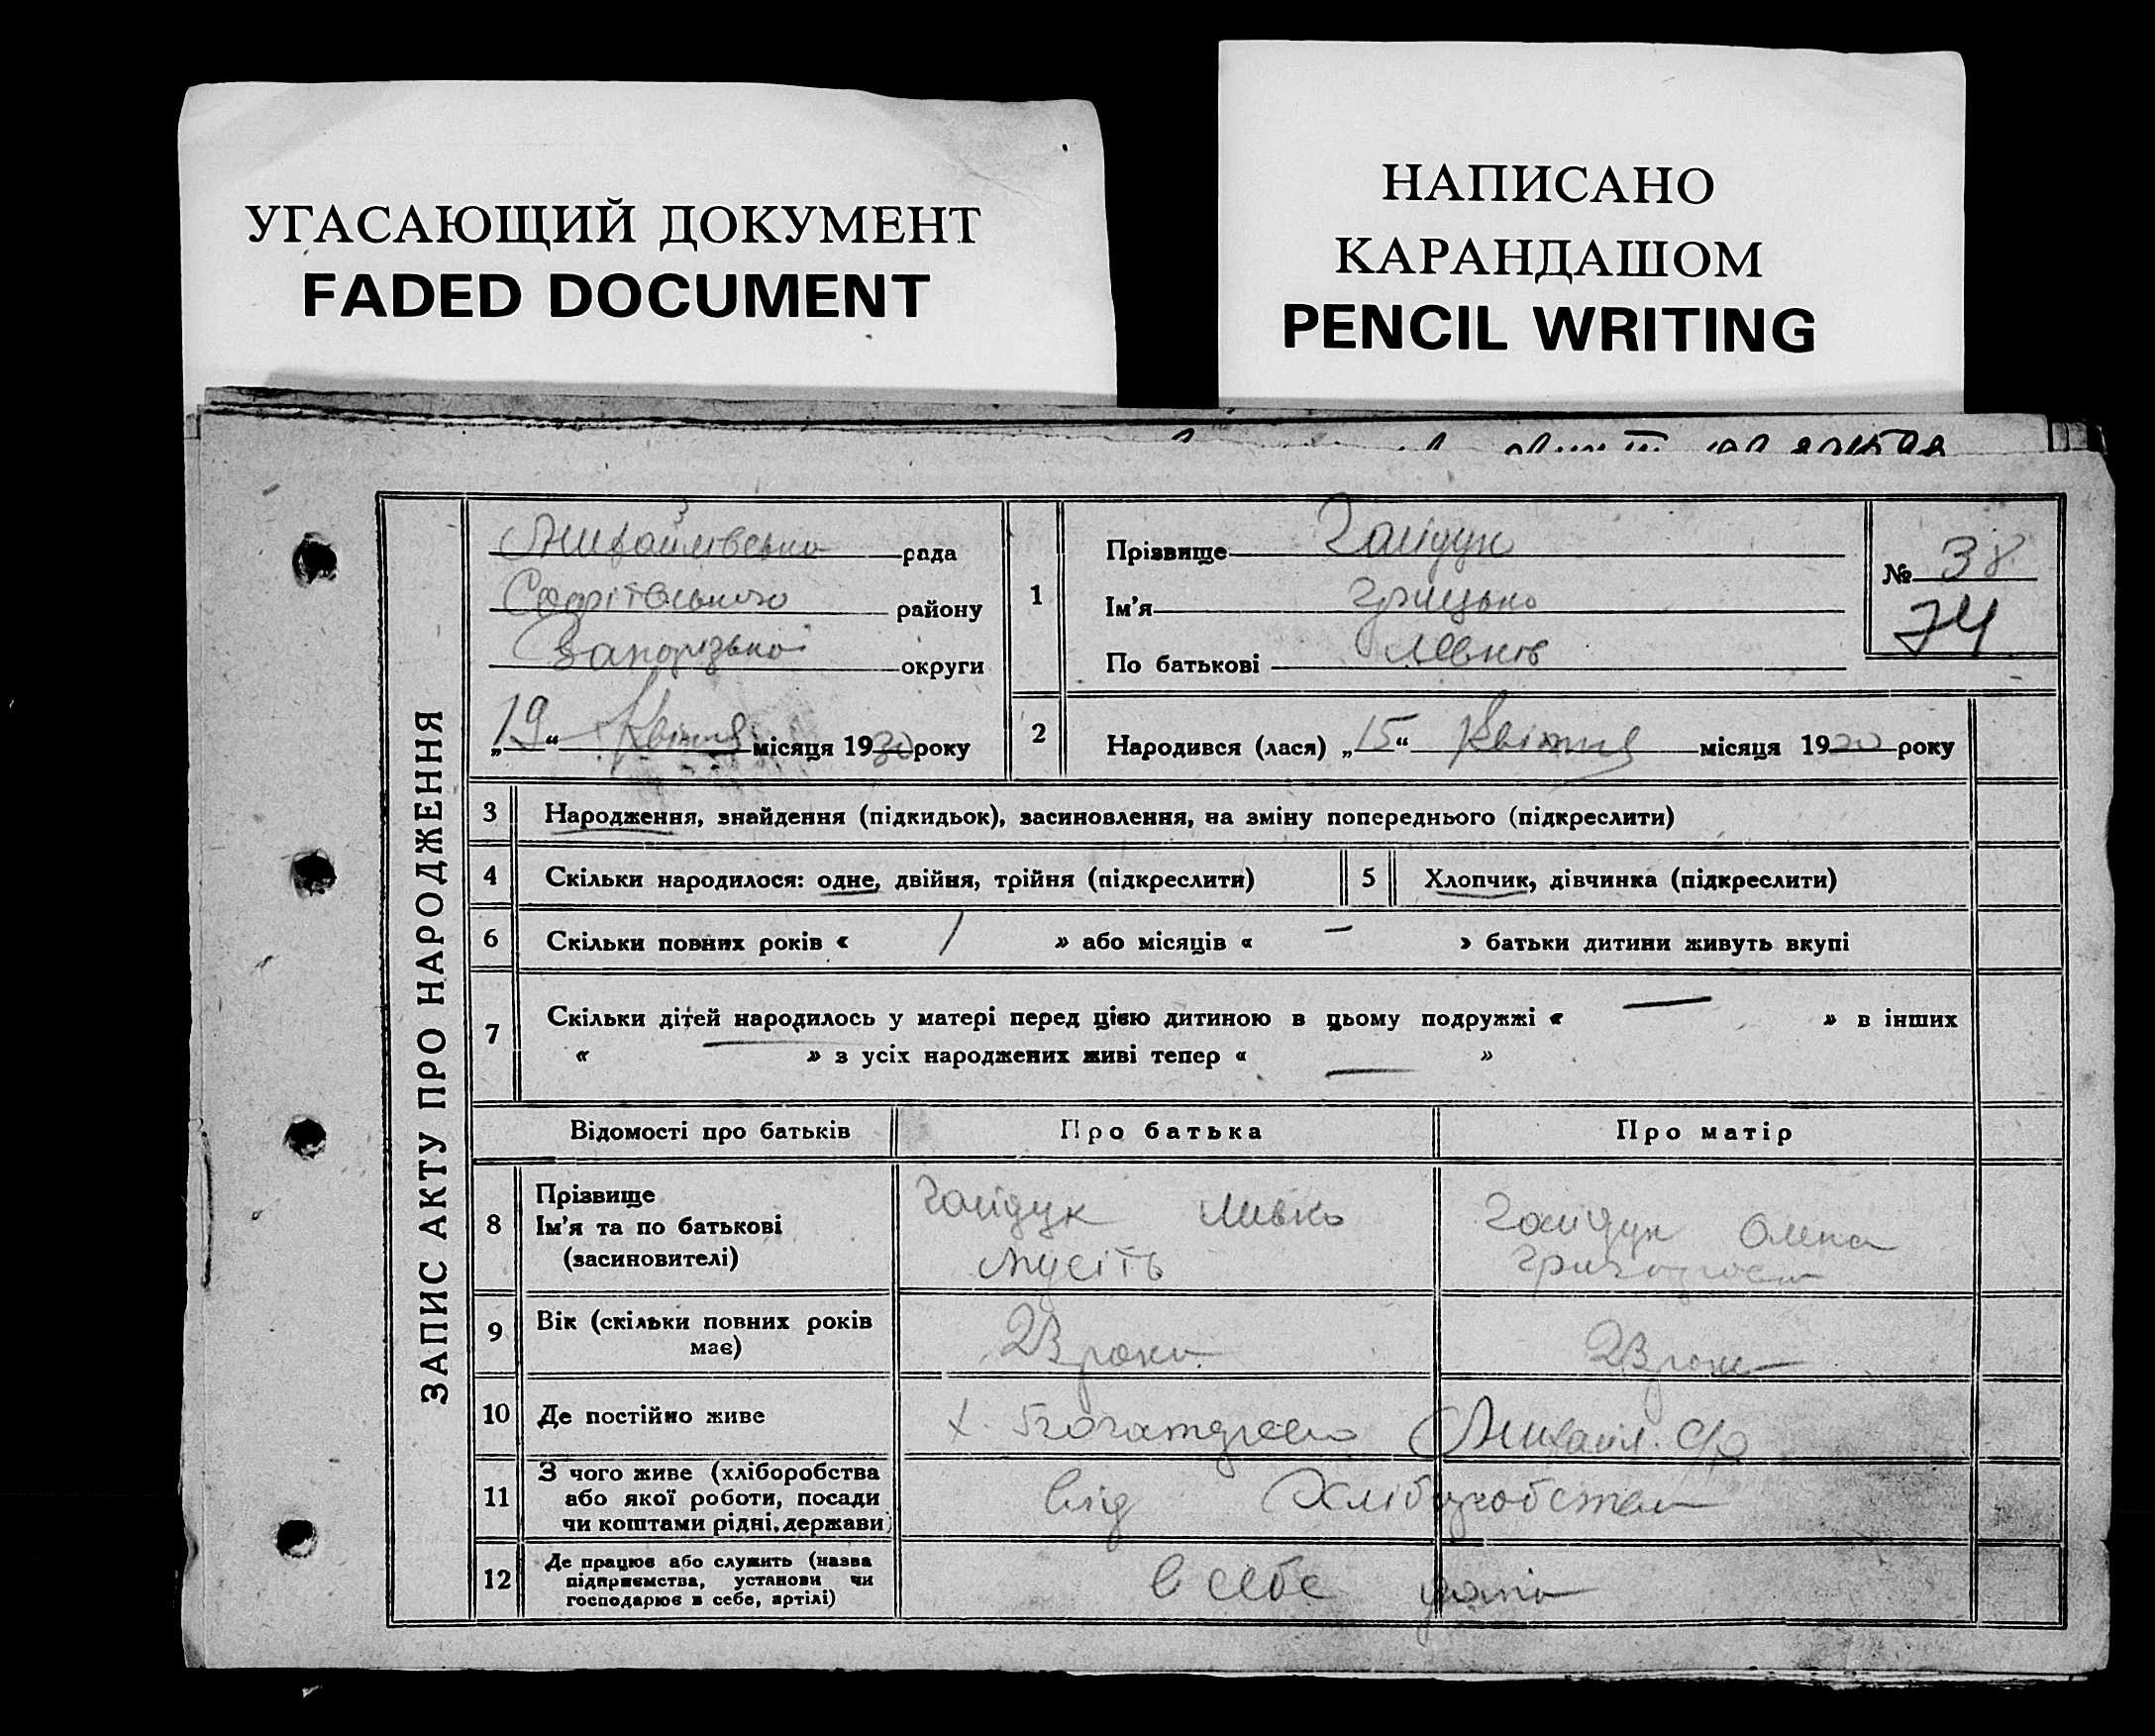 УГАСАЮЩИЙ ДОКУМЕНТ
FADED DOCUMENT
НАПИСАНО
КАРАНДАШОМ
PENCIL WRITING
ЗАПИС АКТУ ПРО НАРОДЖЕННЯ
Михайлівська рада
району
Запорізької округи
„19“ Квітня місяця 1930 року
1
Прізвище Гайдук
Ім'я Грицько
По батькові Левків
№ 38
74
2
Народився (лася) „15“ Квітня місяця 1930 року
3 Народження, знайдення (підкидьок), засиновлення, на зміну попереднього (підкреслити)
4 Скільки народилося: одне, двійня, трійня (підкреслити)
5 Хлопчик, дівчинка (підкреслити)
6 Скільки повних років « 1 » або місяців « — » батьки дитини живуть вкупі
7 Скільки дітей народилось у матері перед цією дитиною в цьому подружжі « — » в інших
« — » з усіх народжених живі тепер « — »
Відомості про батьків
Про батька
Про матір
8
Прізвище
Ім'я та по батькові
(засиновителі)
Гайдук Левко
Гайдук Олена
9
Вік (скільки повних років
має)
23 роки
23 роки
10 Де постійно живе
х. Михайл. с/р
11
З чого живе (хліборобства
або якої роботи, посади
чи коштами рідні, держави)
від Хліборобства
12
Де працює або служить (назва
підприємства, установи чи
господарює в себе, артілі)
в себе